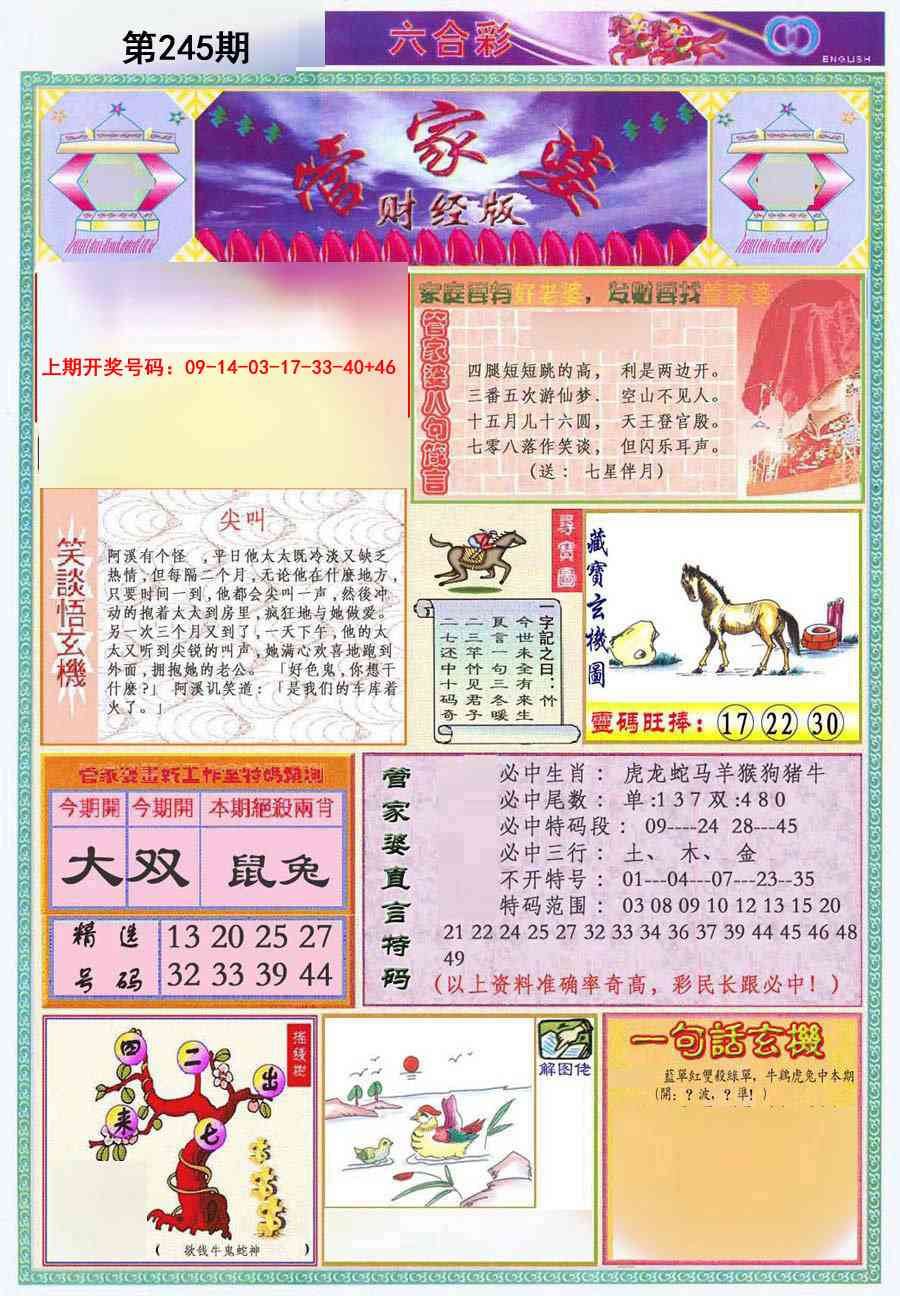 第245期
六合彩
ENGLISH
管家婆
财经版
上期开奖号码：09-14-03-17-33-40+46
家庭要有好老婆，发财要找管家婆
管家婆八句箴言
四腿短短跳的高， 利是两边开。
三番五次游仙梦． 空山不见人。
十五月儿十六圆， 天王登官殿。
七零八落作笑谈， 但闪乐耳声。
（送：七星伴月）
笑談悟玄機
尖叫
阿溪有个怪 ,平日他太太既冷淡又缺乏
热情,但每隔二个月,无论他在什麽地方,
只要时间一到,他都会尖叫一声,然後冲
动的抱着太太到房里,疯狂地与她做爱。
另一次三个月又到了,一天下午,他的太
太又听到尖锐的叫声,她满心欢喜地跑到
外面,拥抱她的老公。 「好色鬼,你想干
什麼?」 阿溪讥笑道：「是我们的车库着
火了。」
尋寶圖
一字記之曰：竹
今世未全有来生
亙言一句三冬暖
二三竿竹见君子
二七还中十码奇
藏寶玄機圖
靈碼旺捧：17 22 30
管家婆畫黔工作室特碼預測
今期開 今期開 本期絕殺兩肖
大 双 鼠兔
精选号码
13 20 25 27
32 33 39 44
管家婆直言特码
必中生肖： 虎龙蛇马羊猴狗猪牛
必中尾数： 单:1 3 7 双:4 8 0
必中特码段： 09----24 28---45
必中三行： 土、 木、 金
不开特号： 01---04---07---23--35
特码范围： 03 08 09 10 12 13 15 20
21 22 24 25 27 32 33 34 36 37 39 44 45 46 48
49
（以上资料准确率奇高，彩民长跟必中！）
摇錢樹
四
二
出
来
七
( 欲钱牛鬼蛇神 )
解图佬
一句話玄機
藍單紅雙殺緑單，牛鶏虎兔中本期
(開：？波，？準！)